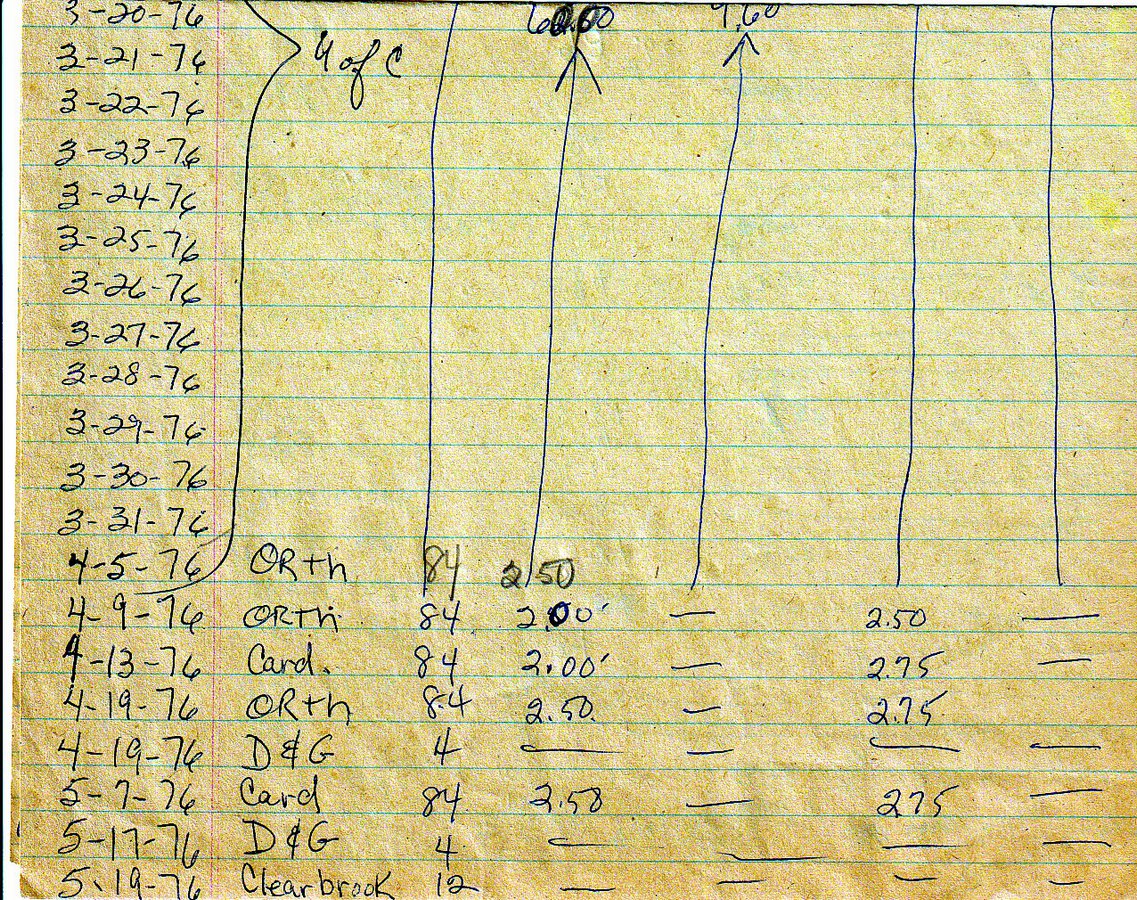 3-20-76 60.50 9.60
3-21-76 U of C
3-22-76
3-23-76
3-24-76
3-25-76
3-26-76
3-27-76
3-28-76
3-29-76
3-30-76
3-31-76
4-5-76 ORth 84 2.50
4-9-76 ORTh. 84 2.00 — 2.50 —
4-13-76 Card. 84 2.00 — 2.75 —
4-19-76 ORth 84 2.50. — 2.75
4-19-76 D&G 4 — — — —
5-7-76 Card 84 2.50 — 275 —
5-17-76 D&G 4 — — — —
5-19-76 Clearbrook 12 — — — —